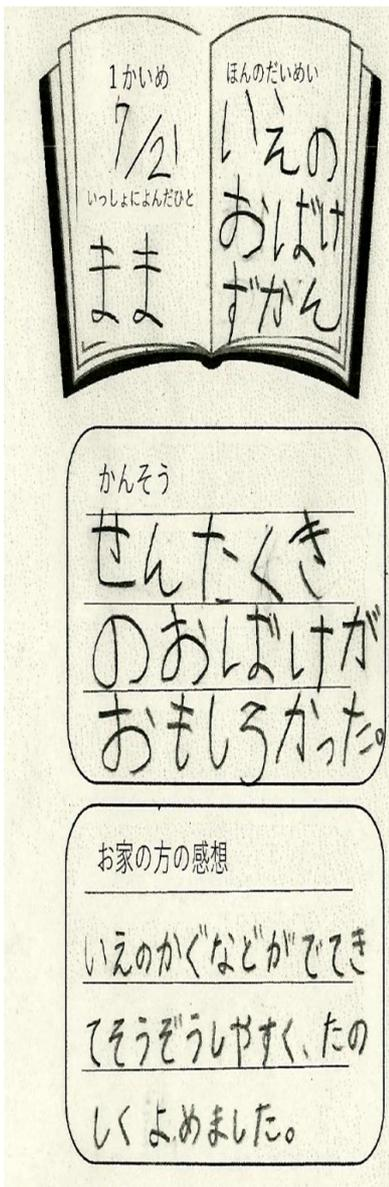 1かいめ
7/21
いっしょによんだひと
まま
ほんのだいめい
いえの
おばけ
ずかん
かんそう
せんたくき
のおばけが
おもしろかった。
お家の方の感想
いえのかぐなどがでてき
てそうぞうしやすく、たの
しくよめました。